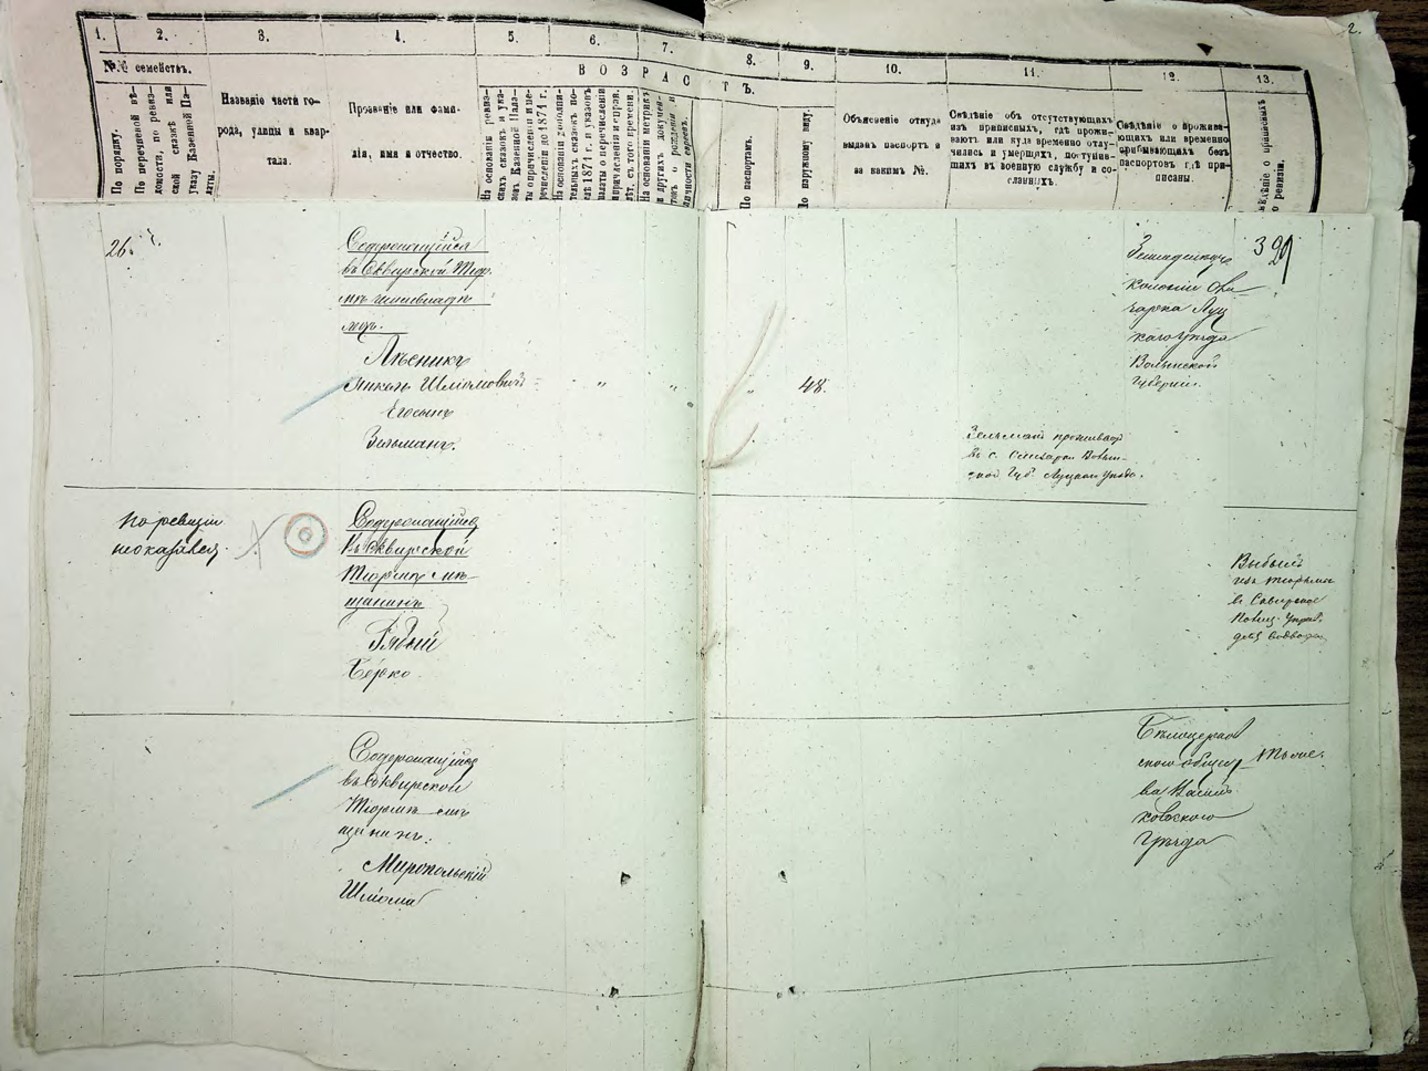 2.
1. 2. 3. 4. 5. 6. 7. 8. 9. 10. 11. 12. 13.
№№ семействъ.
По порядку.
По перечневой вѣ-
домости, по ревиз-
ской сказкѣ или
указу Казенной Па-
латы.
Названіе части го-
рода, улицы и квар-
тала.
Прозваніе или фами-
лія, имя и отчество.
ВОЗРАСТЪ.
На основаніи ревиз-
скихъ сказокъ и ука-
зовъ Казенной Пала-
ты о причисленіи и пе-
речисленіи до 1871 г.
На основаніи дополни-
тельныхъ сказокъ по-
слѣ 1871 г. и указовъ
палаты о перечисленіи
причисленіи и справ.
лѣт. съ того времени.
На основаніи метрик.
и другихъ докумен-
товъ о рожденіи и
личности евреевъ.
По паспортамъ.
По наружному виду.
Объясненіе откуда
выданъ паспортъ и
за какимъ №.
Свѣдѣніе объ отсутствующихъ
изъ приписныхъ, гдѣ прожи-
ваютъ или куда временно отлу-
чились и умершихъ, поступив-
шихъ въ военную службу и со-
сланныхъ.
Свѣдѣніе о прожива-
ющихъ или временно
прибывающихъ безъ
паспортовъ гдѣ при-
писаны.
Свѣдѣніе о
по ревизіи.
26.
Содержащійся
въ Сквирской Тюр-
мѣ
Лѣсникъ
Янкель Шліомовичъ
Егосынъ
Зельманъ.
48.
Зельманъ проживаетъ
въ с. Волын-
ской Губ. Луцкаго уѣзда.
колоніи
Луц
каго уѣзда
Волынской
Губерніи.
39
по ревизіи
непоказался.
Содержащійся
въ Сквирской
Тюрмѣ мѣ-
щанинъ
Рябый
Берко
Выбылъ
изъ тюрьмы
въ Сквирское
Полиц. Управ.
для
Содержащійся
въ Сквирской
Тюрмѣ мѣ
щанинъ:
Миропольскій
Шліома
Бѣлоцерков
скаго общест
ва Василь
ковского
уѣзда
Тоже.